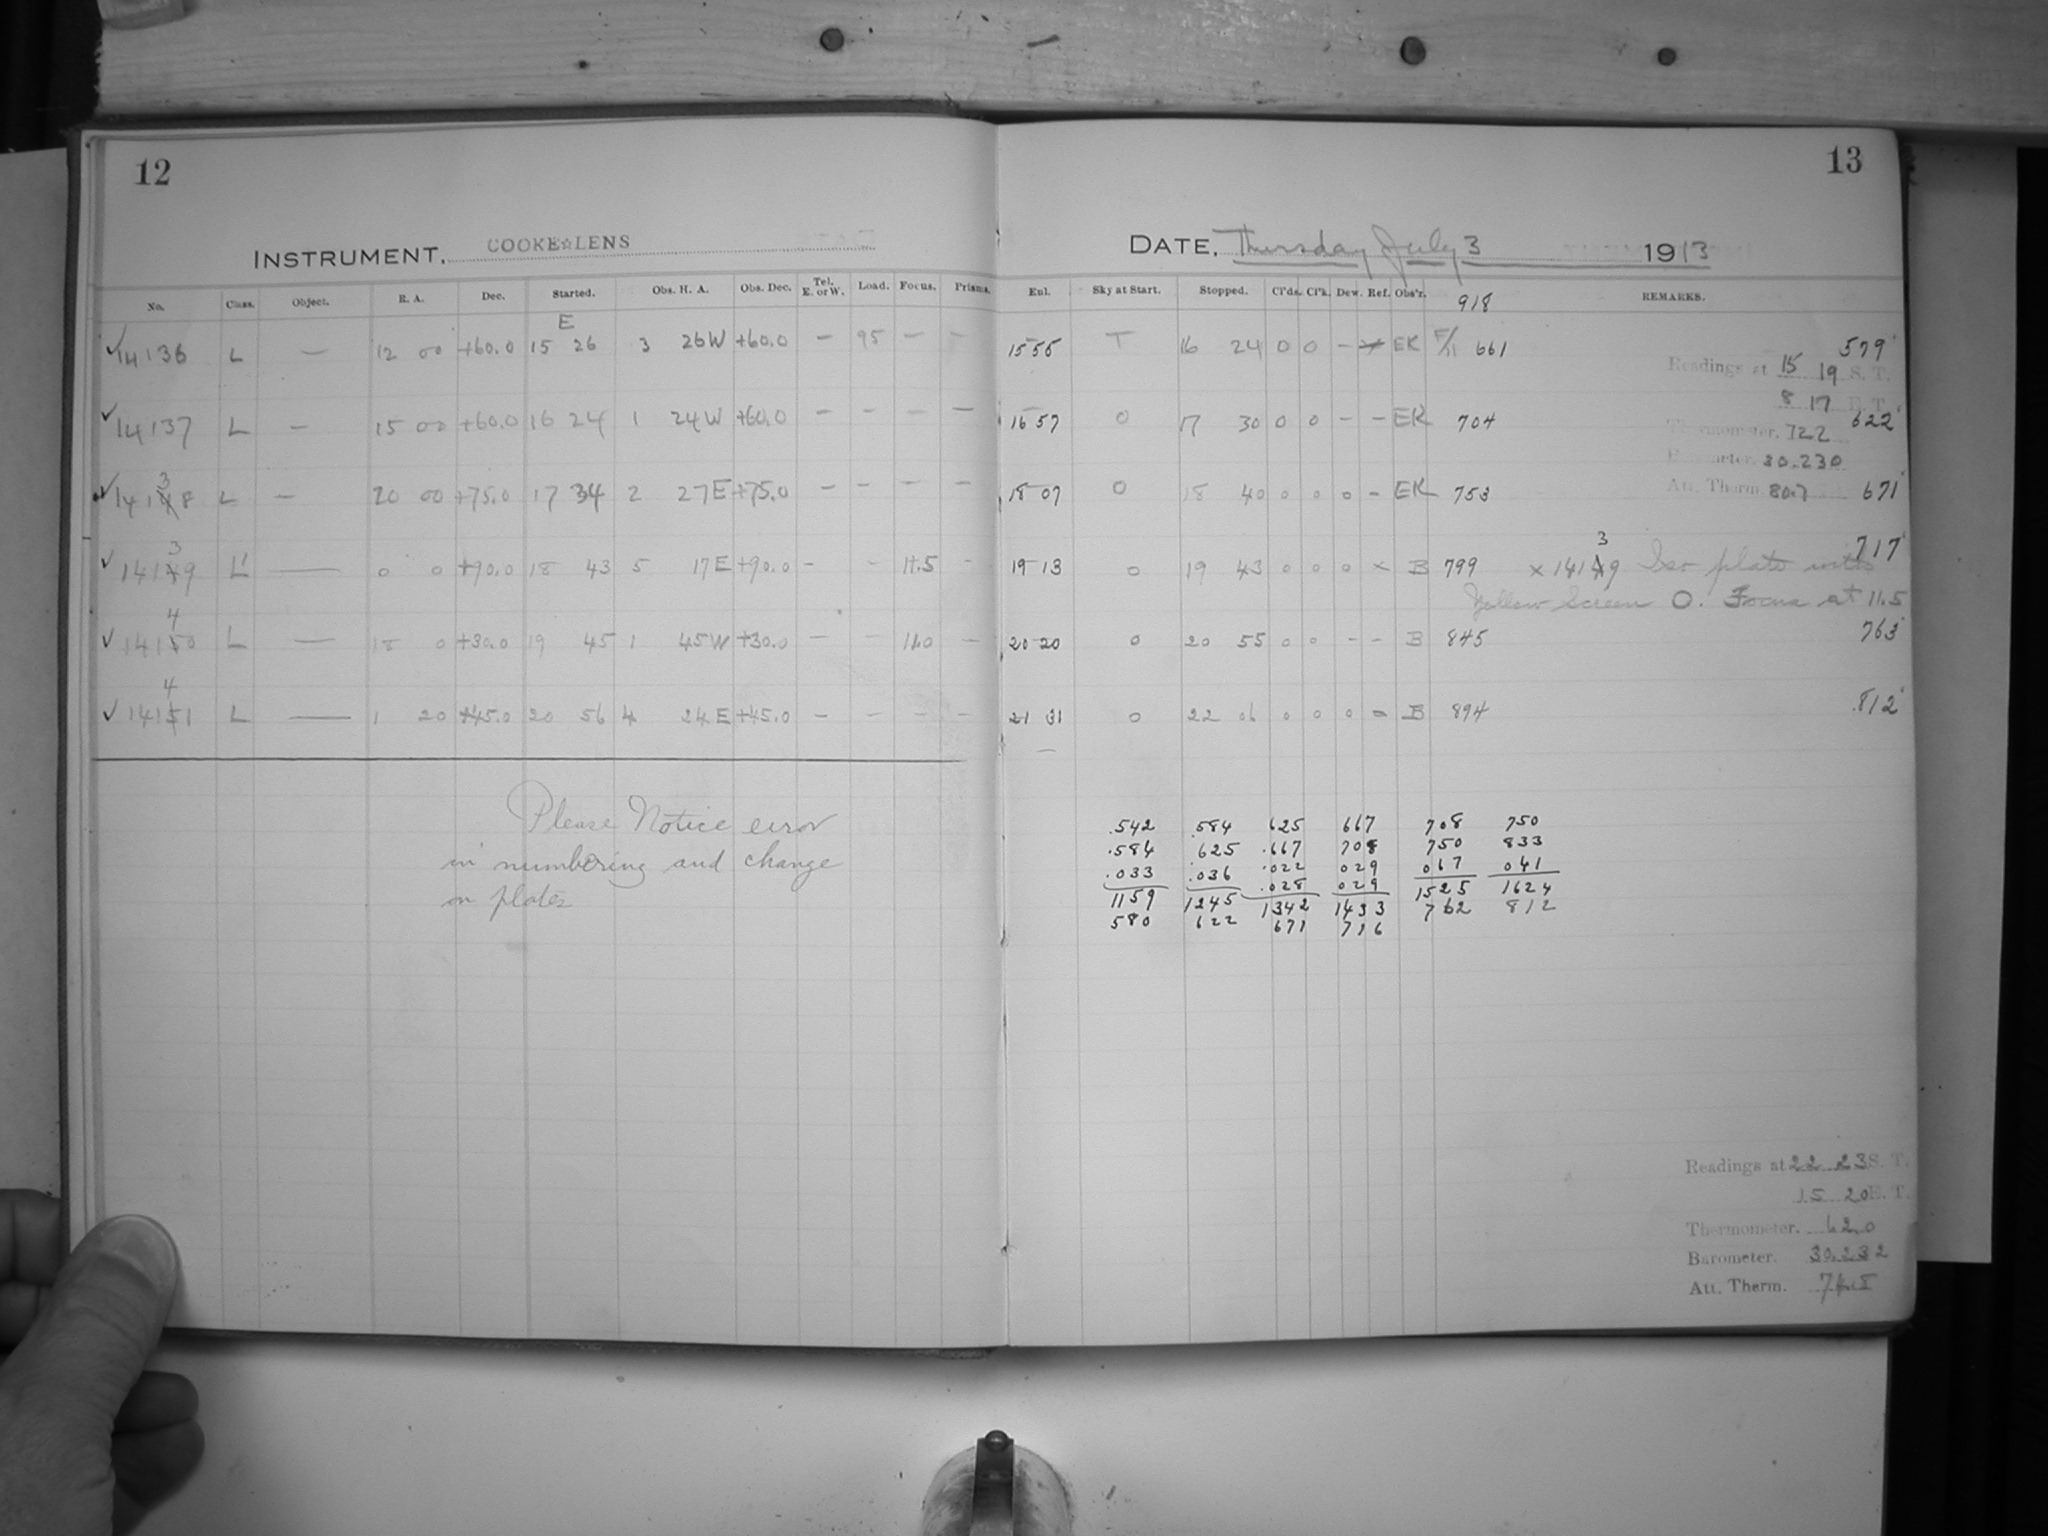 12
13
INSTRUMENT. COOKE☆LENS
DATE. Thursday July 3 1913
No. Class. Object. R. A. Dec. Started. Obs. H. A. Obs. Dec. Tel. E. or W. Load. Focus. Prisms. Eul. Sky at Start. Stopped. Cl'ds. Cl'k. Dew. Ref. Obs'r. 918 REMARKS.
E
✓14136 L — 12 00 +60.0 15 26 3 26W +60.0 — 95 — — 15 55 T 16 24 0 0 — EK F/11 661 579
Readings at 15 19 S. T.
8 17 E. T.
✓14137 L — 15 00 +60.0 16 24 1 24W +60.0 — — — — 16 57 0 17 30 0 0 — — EK 704 622
Thermometer. 722
Barometer. 30.230
3
✓14148 L — 20 00 +75.0 17 34 2 27E +75.0 — — — — 18 07 0 18 40 0 0 0 — EK 753 671
Att. Therm. 80.7
3
✓14149 L' — 0 0 +90.0 18 43 5 17E +90.0 — — 11.5 — 19 13 0 19 43 0 0 0 × B 799 717
3
× 14149 Iso plate with
Yellow Screen O. Focus at 11.5
4
✓14150 L — 18 0 +30.0 19 45 1 45W +30.0 — — 11.0 — 20 20 0 20 55 0 0 — — B 845 763
4
✓14151 L — 1 20 +45.0 20 56 4 24E +45.0 — — — — 21 31 0 22 06 0 0 0 — B 894 .812
Please Notice error
in numbering and change
on plates
.542 .584 625 667 708 750
.584 .625 .667 708 750 833
.033 .036 .022 029 067 041
.028 029
1159 1245 1342 1433 1525 1624
580 622 671 716 762 812
Readings at 22 23 S. T.
15 20 E. T.
Thermometer. 62.0
Barometer. 30.232
Att. Therm.